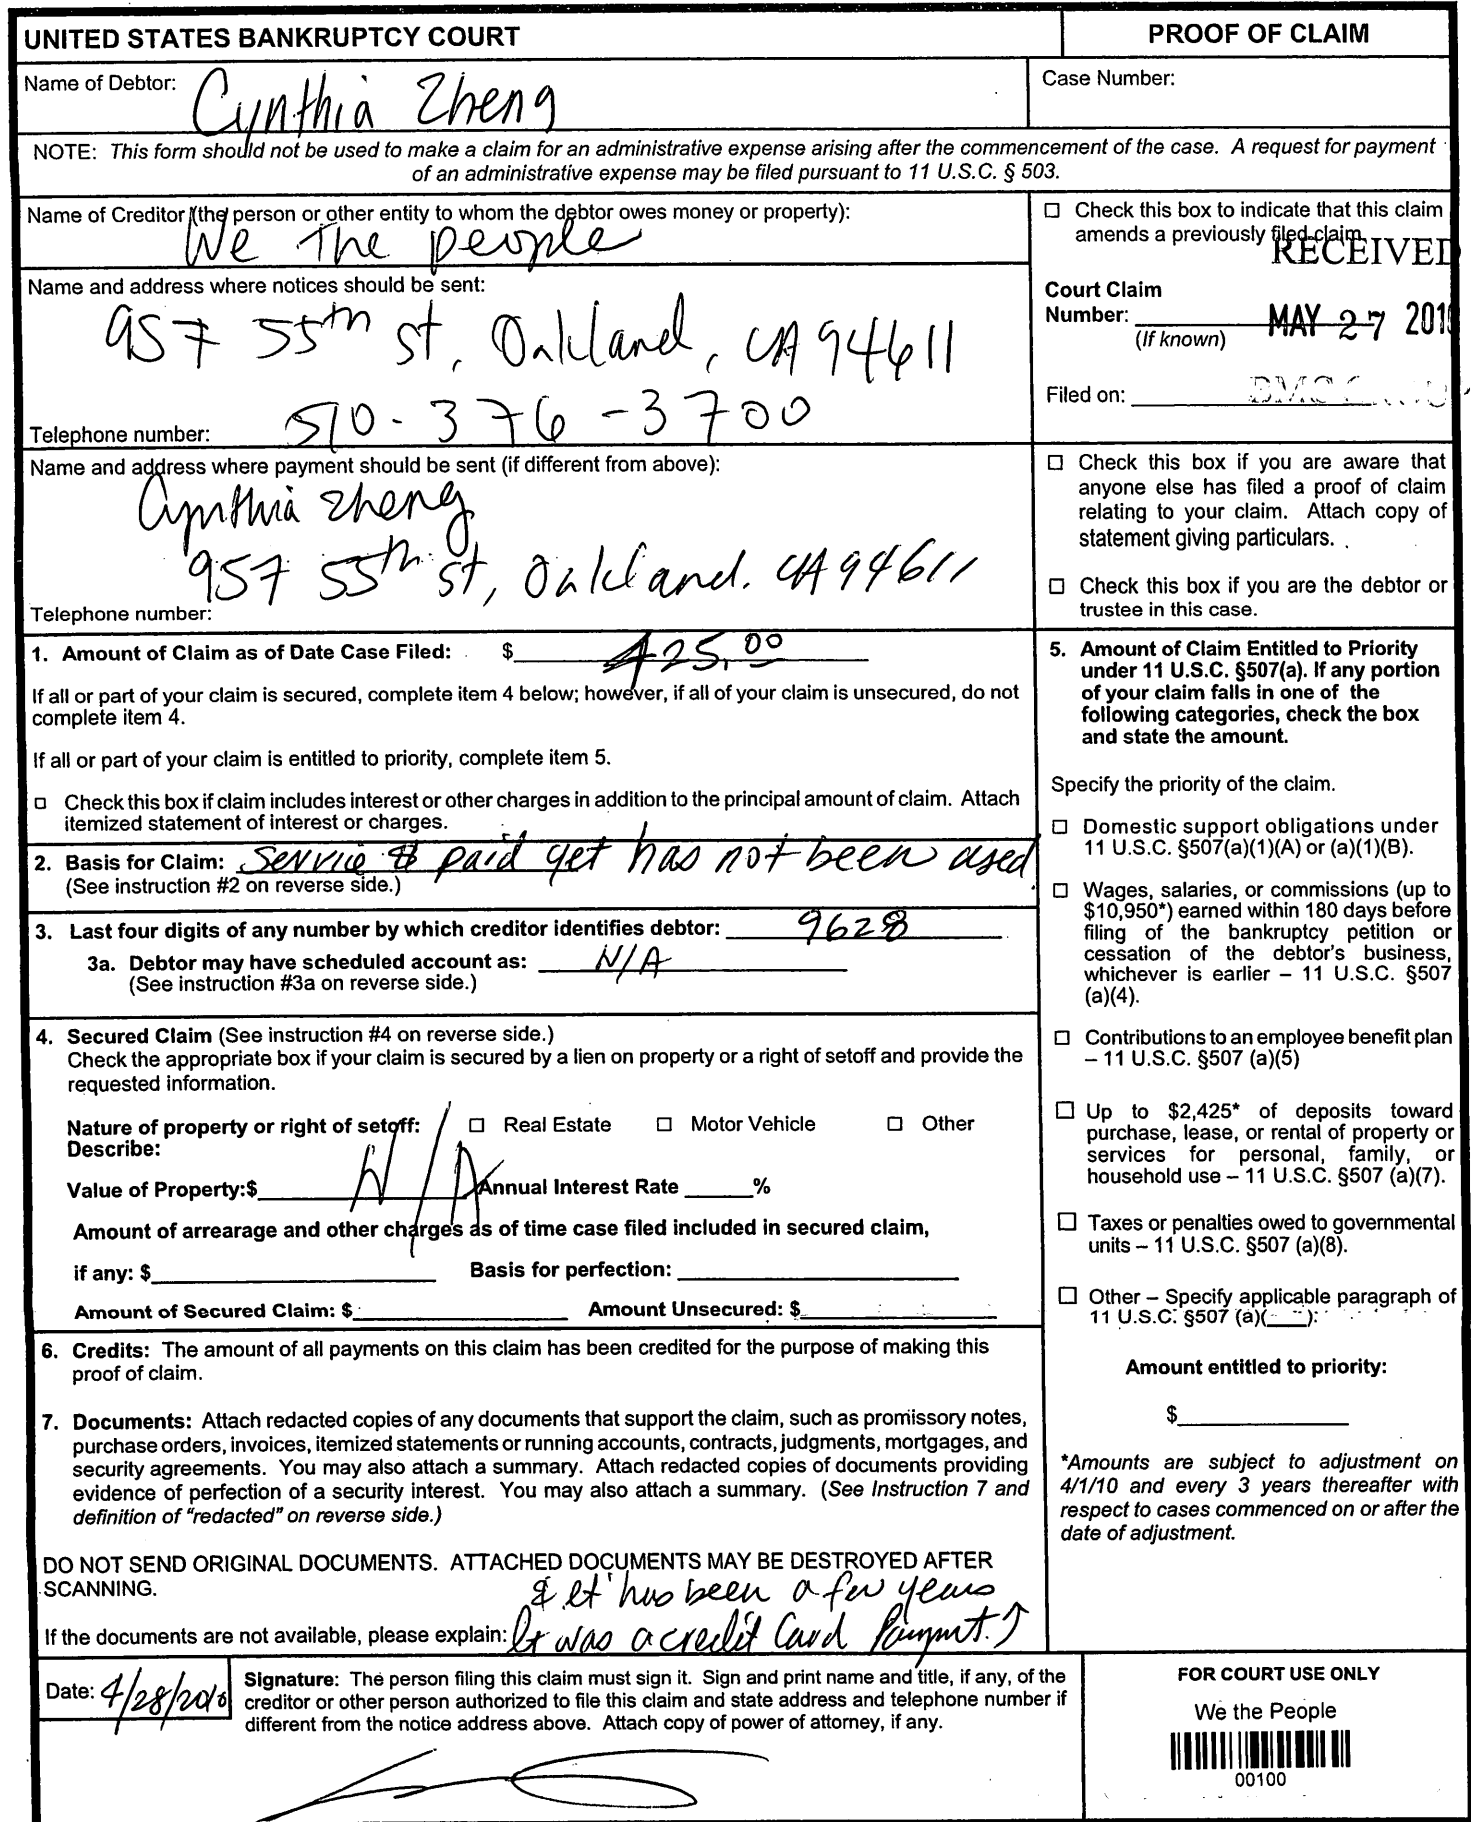 UNITED STATES BANKRUPTCY COURT
PROOF OF CLAIM
Name of Debtor: Cynthia Zheng
Case Number:
NOTE: This form should not be used to make a claim for an administrative expense arising after the commencement of the case. A request for payment
of an administrative expense may be filed pursuant to 11 U.S.C. § 503.
Name of Creditor (the person or other entity to whom the debtor owes money or property):
We The people
Name and address where notices should be sent:
957 55th st, Oakland, CA 94611
Telephone number: 510-376-3700
Name and address where payment should be sent (if different from above):
Cynthia Zheng
957 55th st, Oakland. CA 94611
Telephone number:
Check this box to indicate that this claim
amends a previously filed claim.
RECEIVED
Court Claim
Number:
(If known)
MAY 27 201
Filed on:
Check this box if you are aware that
anyone else has filed a proof of claim
relating to your claim. Attach copy of
statement giving particulars.
Check this box if you are the debtor or
trustee in this case.
1. Amount of Claim as of Date Case Filed: $ 425.00
If all or part of your claim is secured, complete item 4 below; however, if all of your claim is unsecured, do not
complete item 4.
If all or part of your claim is entitled to priority, complete item 5.
Check this box if claim includes interest or other charges in addition to the principal amount of claim. Attach
itemized statement of interest or charges.
2. Basis for Claim: Service paid yet has not been used
(See instruction #2 on reverse side.)
3. Last four digits of any number by which creditor identifies debtor: 9628
3a. Debtor may have scheduled account as: N/A
(See instruction #3a on reverse side.)
4. Secured Claim (See instruction #4 on reverse side.)
Check the appropriate box if your claim is secured by a lien on property or a right of setoff and provide the
requested information.
Nature of property or right of setoff: Real Estate Motor Vehicle Other
Describe:
N/A
Value of Property:$ Annual Interest Rate %
Amount of arrearage and other charges as of time case filed included in secured claim,
if any: $ Basis for perfection:
Amount of Secured Claim: $ Amount Unsecured: $
6. Credits: The amount of all payments on this claim has been credited for the purpose of making this
proof of claim.
7. Documents: Attach redacted copies of any documents that support the claim, such as promissory notes,
purchase orders, invoices, itemized statements or running accounts, contracts, judgments, mortgages, and
security agreements. You may also attach a summary. Attach redacted copies of documents providing
evidence of perfection of a security interest. You may also attach a summary. (See Instruction 7 and
definition of "redacted" on reverse side.)
DO NOT SEND ORIGINAL DOCUMENTS. ATTACHED DOCUMENTS MAY BE DESTROYED AFTER
SCANNING.
& it has been a few years
If the documents are not available, please explain: It was a credit Card Payment.
5. Amount of Claim Entitled to Priority
under 11 U.S.C. §507(a). If any portion
of your claim falls in one of the
following categories, check the box
and state the amount.
Specify the priority of the claim.
Domestic support obligations under
11 U.S.C. §507(a)(1)(A) or (a)(1)(B).
Wages, salaries, or commissions (up to
$10,950*) earned within 180 days before
filing of the bankruptcy petition or
cessation of the debtor's business,
whichever is earlier – 11 U.S.C. §507
(a)(4).
Contributions to an employee benefit plan
– 11 U.S.C. §507 (a)(5)
Up to $2,425* of deposits toward
purchase, lease, or rental of property or
services for personal, family, or
household use – 11 U.S.C. §507 (a)(7).
Taxes or penalties owed to governmental
units – 11 U.S.C. §507 (a)(8).
Other – Specify applicable paragraph of
11 U.S.C. §507 (a)(___):
Amount entitled to priority:
$
*Amounts are subject to adjustment on
4/1/10 and every 3 years thereafter with
respect to cases commenced on or after the
date of adjustment.
Date: 4/28/2010
Signature: The person filing this claim must sign it. Sign and print name and title, if any, of the
creditor or other person authorized to file this claim and state address and telephone number if
different from the notice address above. Attach copy of power of attorney, if any.
FOR COURT USE ONLY
We the People
00100